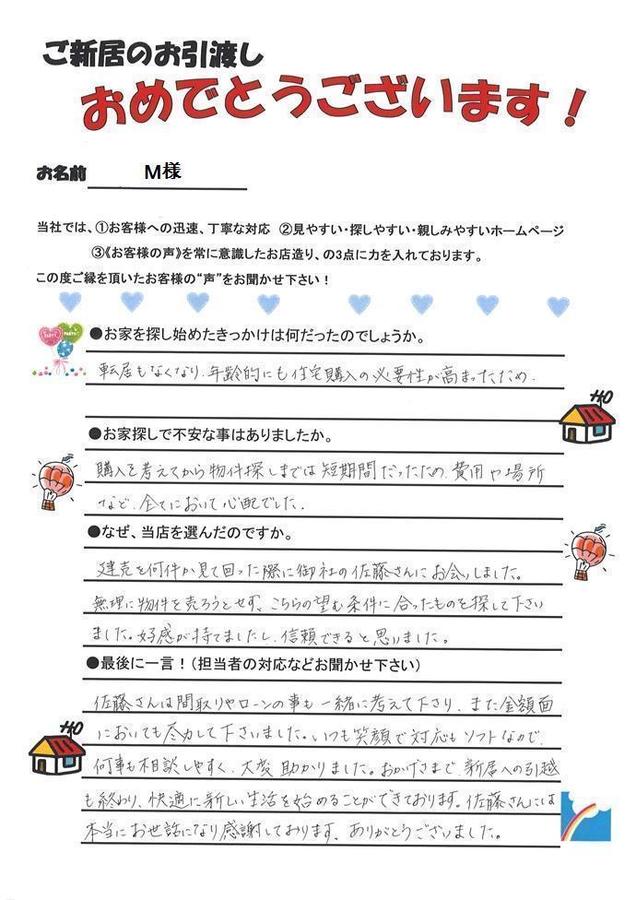 ご新居のお引渡し
おめでとうございます!
お名前 M様
当社では、①お客様への迅速、丁寧な対応 ②見やすい・探しやすい・親しみやすいホームページ
③《お客様の声》を常に意識したお店造り、の3点に力を入れております。
この度ご縁を頂いたお客様の“声”をお聞かせ下さい!
●お家を探し始めたきっかけは何だったのでしょうか。
転居もなくなり、年齢的にも住宅購入の必要性が高まったため。
●お家探しで不安な事はありましたか。
購入を考えてから物件探しまでは短期間だったため、費用や場所
など、全てにおいて心配でした。
●なぜ、当店を選んだのですか。
建売を何件か見て回った際に御社の佐藤さんにお会いしました。
無理に物件を売ろうとせず、こちらの望む条件に合ったものを探して下さい
ました。好感が持てましたし、信頼できると思いました。
●最後に一言!(担当者の対応などお聞かせ下さい)
佐藤さんは間取りやローンの事も一緒に考えて下さり、また金額面
においても尽力して下さいました。いつも笑顔で対応もソフトなので、
何事も相談しやすく、大変助かりました。おかげさまで、新居への引越
も終わり、快適に新しい生活を始めることができております。佐藤さんには
本当にお世話になり感謝しております。ありがとうございました。
HO
HO